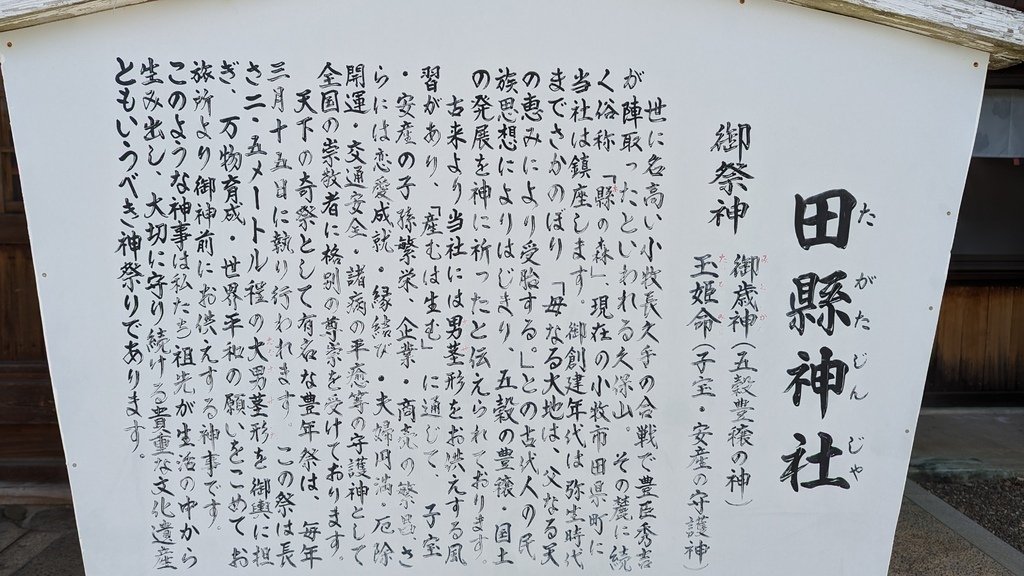 田縣神社
たがたじんじゃ
御祭神
御歳神(五穀豊穣の神)
玉姫命(子宝・安産の守護神)
世に名高い小牧長久手の合戦で豊臣秀吉
が陣取ったといわれる久保山。その麓に続
く俗称「縣の森」、現在の小牧市田県町に
当社は鎮座します。御創建年代は弥生時代
までさかのぼり「母なる大地は、父なる天
の恵みにより受胎する。」との古代人の民
族思想によりはじまり、五穀の豊穣・国土
の発展を神に祈ったと伝えられております。
古来より当社には男茎形をお供えする風
習があり、「産むは生む」に通じて、子宝
・安産の子孫繁栄、企業・商売の繁昌さ
らには恋愛成就・縁結び・夫婦円満・厄除
開運・交通安全・諸病の平癒等の守護神として
全国の崇敬者に格別の尊崇を受けております。
天下の奇祭として有名な豊年祭は、毎年
三月十五日に執り行われます。この祭は長
さ二・五メートル程の大男茎形を御輿に担
ぎ、万物育成・世界平和の願いをこめてお
旅所より御神前にお供えする神事です。
このような神事は私たち祖先が生活の中から
生み出し、大切に守り続ける貴重な文化遺産
ともいうべき神祭りであります。